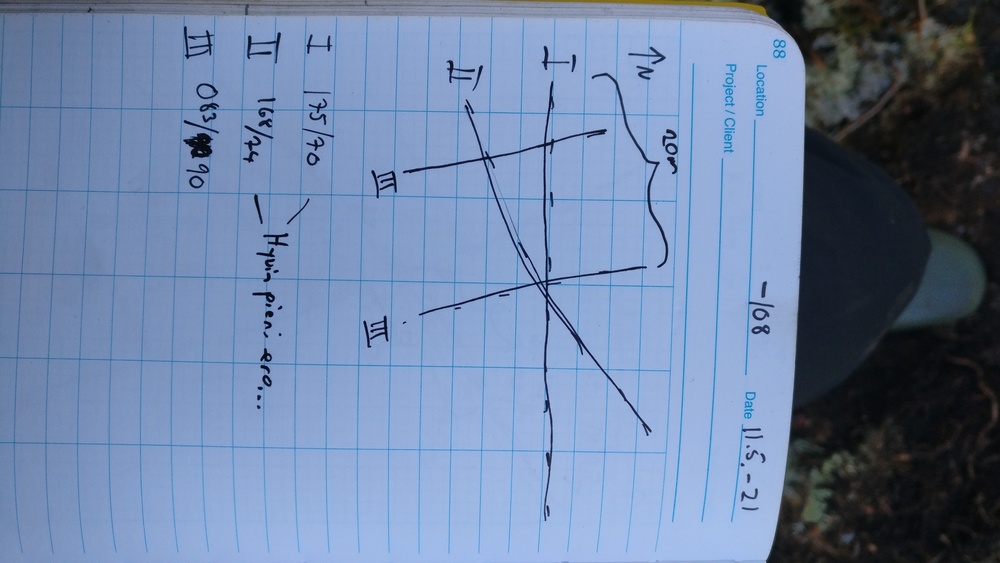 88
Location -108 Date 11.5.-21
Project / Client
↑N
20m
I
II
III
III
I 175/70
II 168/74 — Hyvin pieni ero...
III 083/90